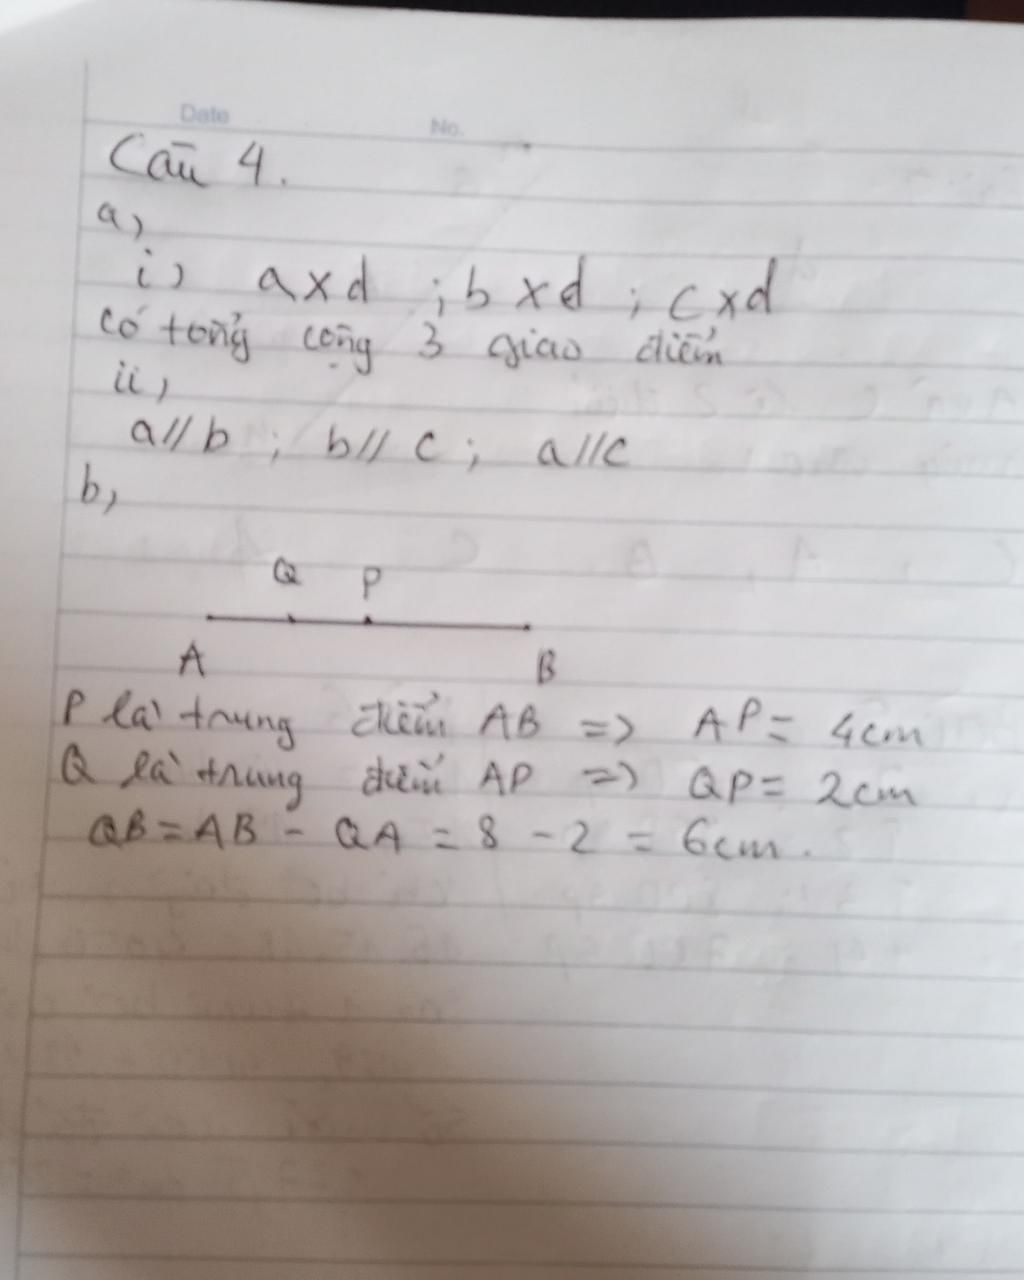 Date No.
Câu 4.
a,
i, a x d ; b x d ; c x d
có tổng cộng 3 giao điểm
ii,
a//b ; b//c ; a//c
b,
Q P
A B
P là trung điểm AB => AP = 4cm
Q là trung điểm AP => QP = 2cm
QB = AB - QA = 8 - 2 = 6cm.